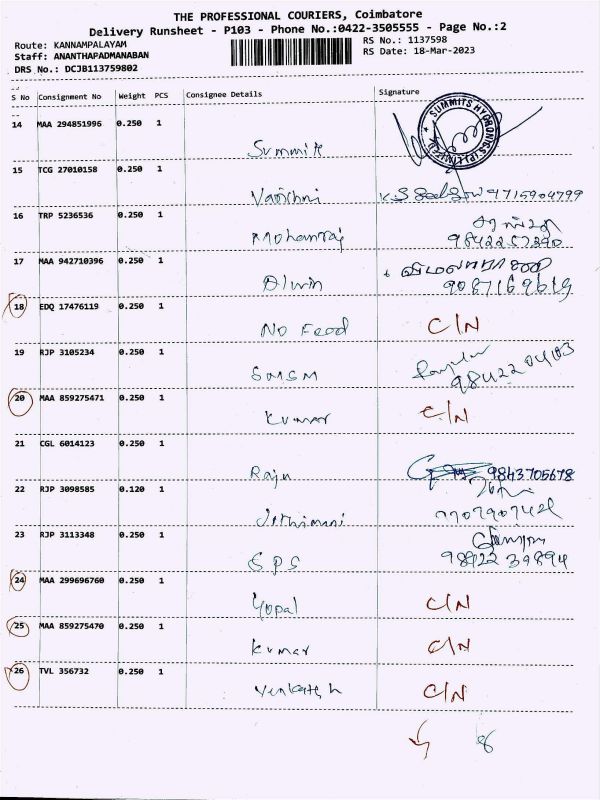 THE PROFESSIONAL COURIERS, Coimbatore
Delivery Runsheet - P103 - Phone No.:0422-3505555 - Page No.:2
Route: KANNAMPALAYAM
RS No.: 1137598
Staff: ANANTHAPADMANABAN
RS Date: 18-Mar-2023
DRS No.: DCJB113759802
S No Consignment No Weight PCS Consignee Details Signature
14 MAA 294851996 0.250 1 Summits
SUMMITS HYDRONICS (P) LIMITED
15 TCG 27010158 0.250 1 Varshni 9715904799
16 TRP 5236536 0.250 1 Mohanraj
9842257390
17 MAA 942710396 0.250 1 Alwin
9087169619
18 EDQ 17476119 0.250 1 No Feod C/N
19 RJP 3105234 0.250 1 SMSM
98422 04103
20 MAA 859275471 0.250 1 Kumar C/N
21 CGL 6014123 0.250 1 Raju 9843705678
22 RJP 3098585 0.120 1 Jothimani
23 RJP 3113348 0.250 1 SPS
98422 39894
24 MAA 299696760 0.250 1 Gopal C/N
25 MAA 859275470 0.250 1 Kumar C/N
26 TVL 356732 0.250 1 Venkatesh C/N